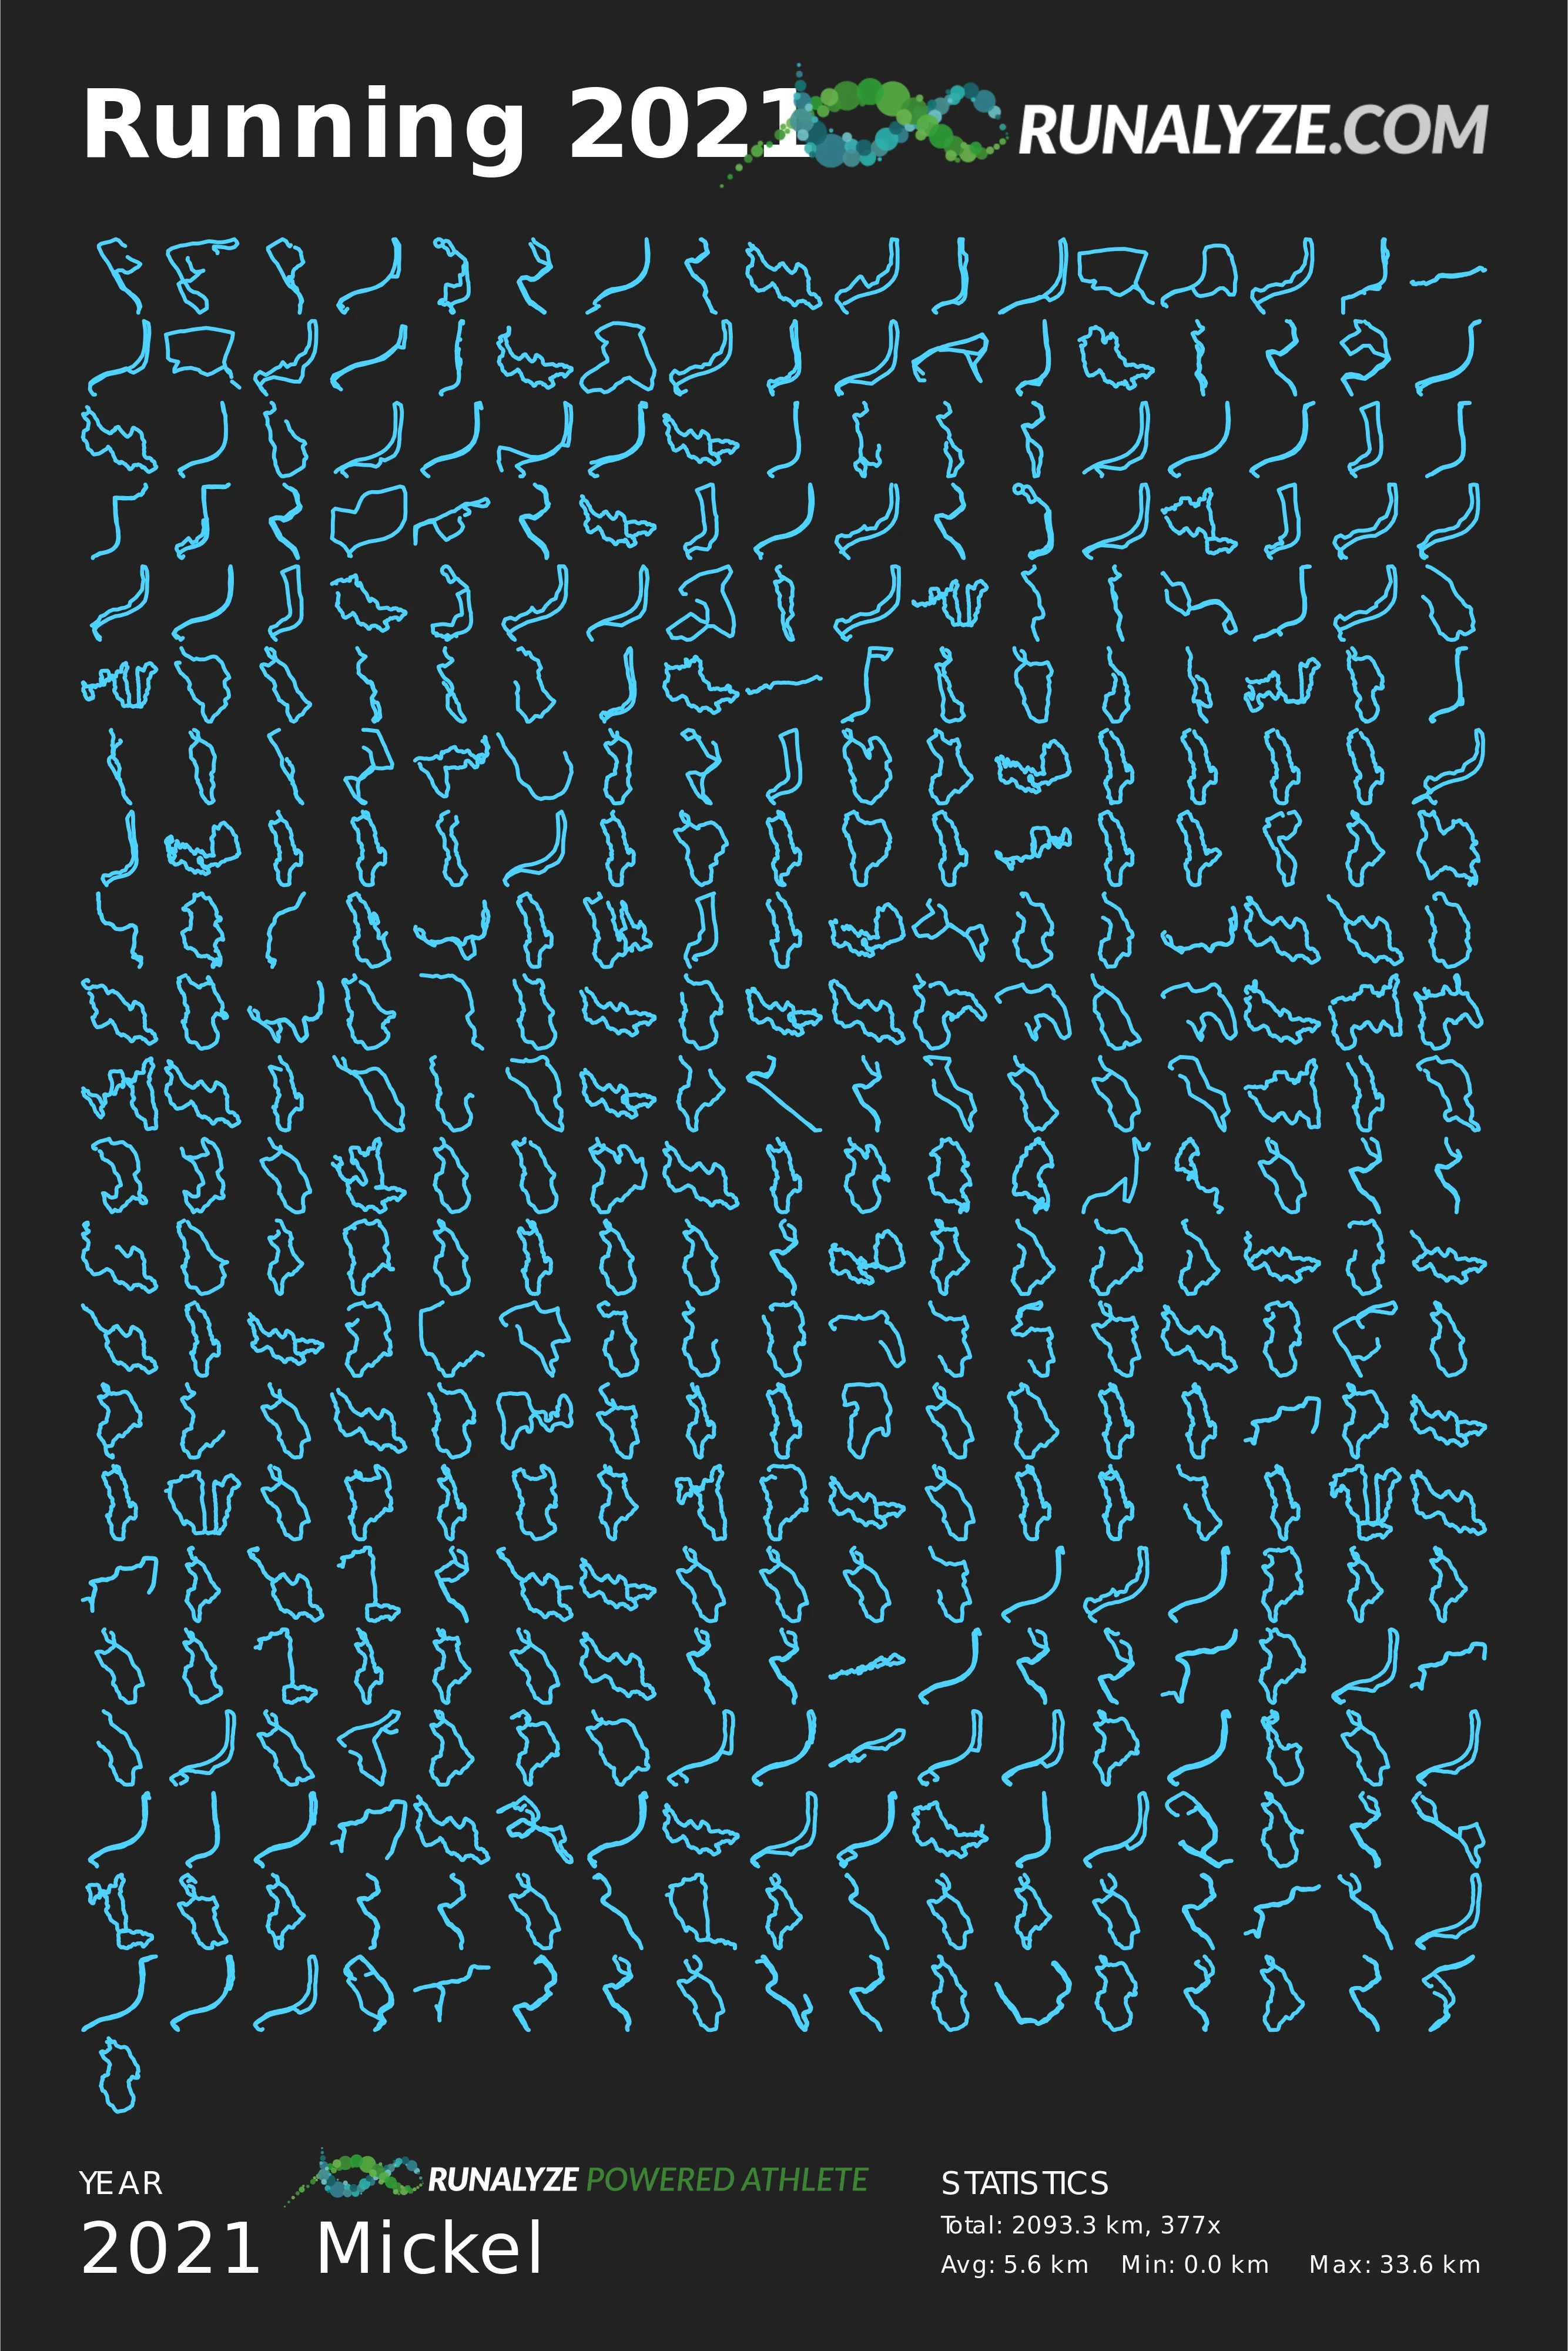 Running 2021
RUNALYZE.COM
YEAR
RUNALYZE POWERED ATHLETE
2021 Mickel
STATISTICS
Total: 2093.3 km, 377x
Avg: 5.6 km Min: 0.0 km Max: 33.6 km